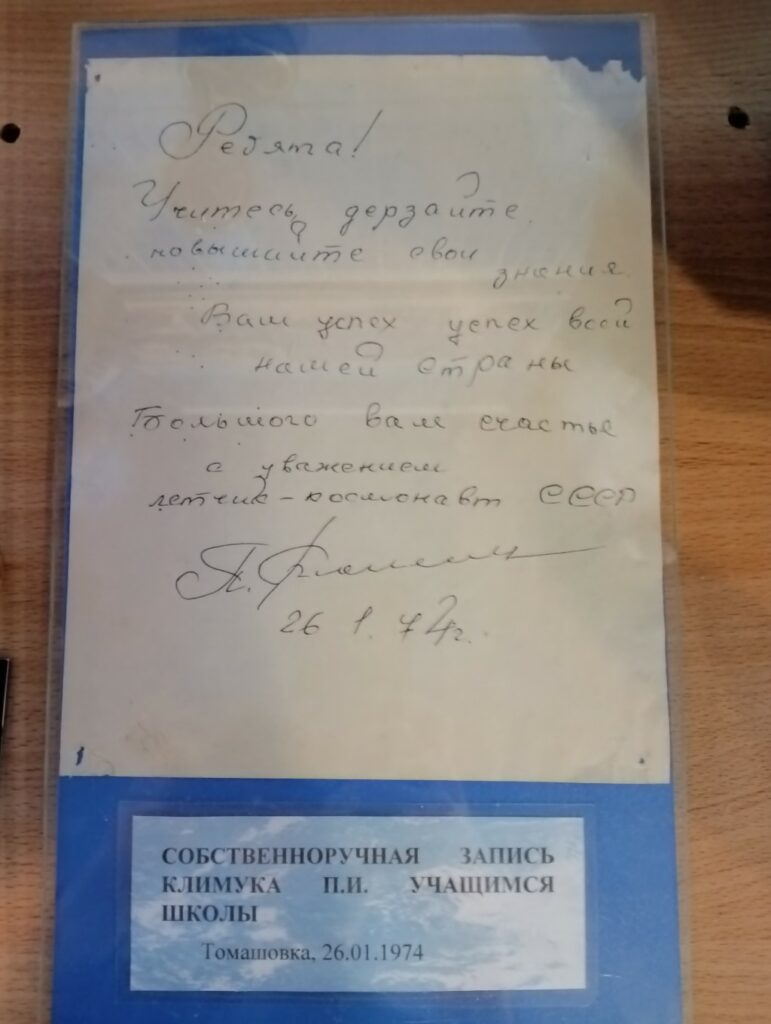 Ребята!
Учитесь, дерзайте,
повышайте свои
знания.
Ваш успех успех всей
нашей страны
Большого вам счастье
с уважением
летчик-космонавт СССР
26 1. 74г.
СОБСТВЕННОРУЧНАЯ ЗАПИСЬ
КЛИМУКА П.И. УЧАЩИМСЯ
ШКОЛЫ
Томашовка, 26.01.1974